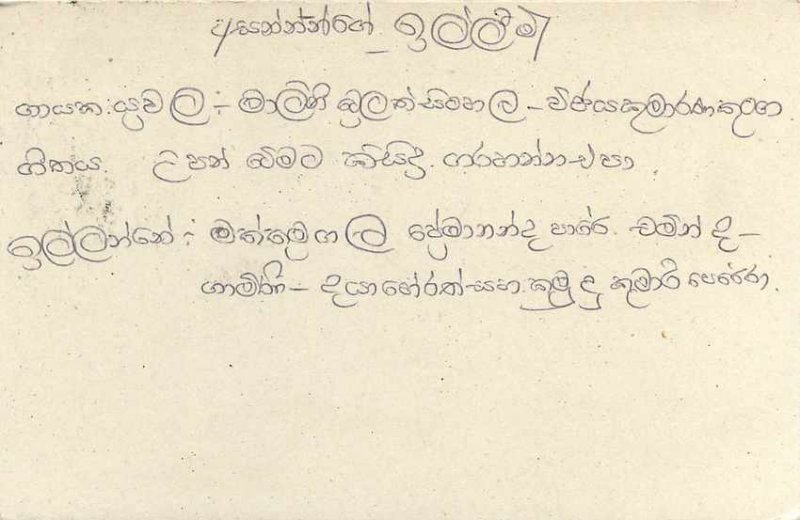 අසන්නන්ගේ ඉල්ලීම
ගායක යුවල :- මාලිනී බුලත්සිංහල – විජය කුමාරණතුංග
ගීතය. උපන් බිමට කිසිදු ගරහන්න එපා
ඉල්ලන්නේ : මත්තේගල ප්‍රේමානන්ද පාරේ. චමින්ද –
ගාමිණි – දයා හේරත් සහ කුමුදු කුමාරි පෙරේරා.